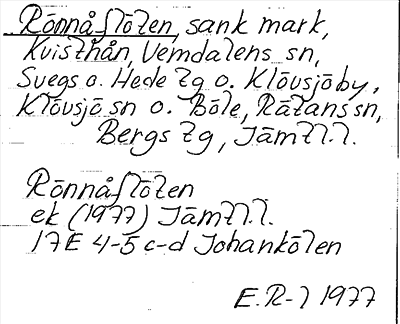 Rönnåflöten, sank mark,
Kvisthån, Vemdalens sn,
Svegs o. Hede tg o. Klövsjöby,
Klövsjö sn o. Böle, Rätans sn,
Bergs tg, Jämtl.l.
Rönnåflöten
ek (1977) Jämtl.l.
17E 4-5 c-d Johankölen
E.R-l 1977